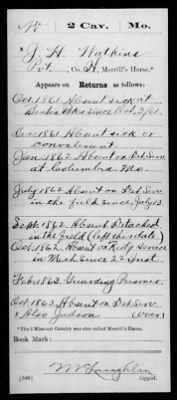 W | 2 Cav. | Mo.
J. H. Watkins
Pvt., Co. H, Merrill's Horse.*
Appears on Returns as follows:
Oct. 1861 Absent sick at
since Oct. 2/61.
Dec 1861 Absent sick or
convalescent.
Jan 1862 Absent on Det. Serv.
at Columbia, Mo.
July 1862 Absent on Det. Serv.
in the field since July 13.
Sept. 1862 Absent Detached
in the field (left the State)
Oct. 1862 Absent on Rec'tg Service
in Mich since 22 Inst.
Feb 1863 Guarding Prisoner.
Oct. 1863 Absent on Det. Serv.
* Also Judson (over)
*The 2 Missouri Cavalry was also called Merrill's Horse.
Book Mark:
McLaughlin
(546) Copyist.